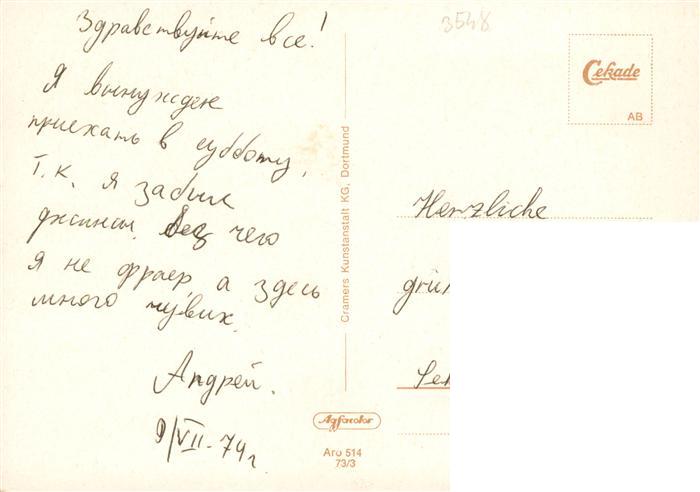 Здравствуйте все!
Я вынужден
приехать в субботу,
т.к. я забыл
джинсы. Без чего
я не фраер, а здесь
много чувих.
Андрей.
9/VII-74г
Cramers Kunstanstalt KG, Dortmund
Agfacolor
Aro 514
73/3
3548
Cekade
AB
Herzliche
grü